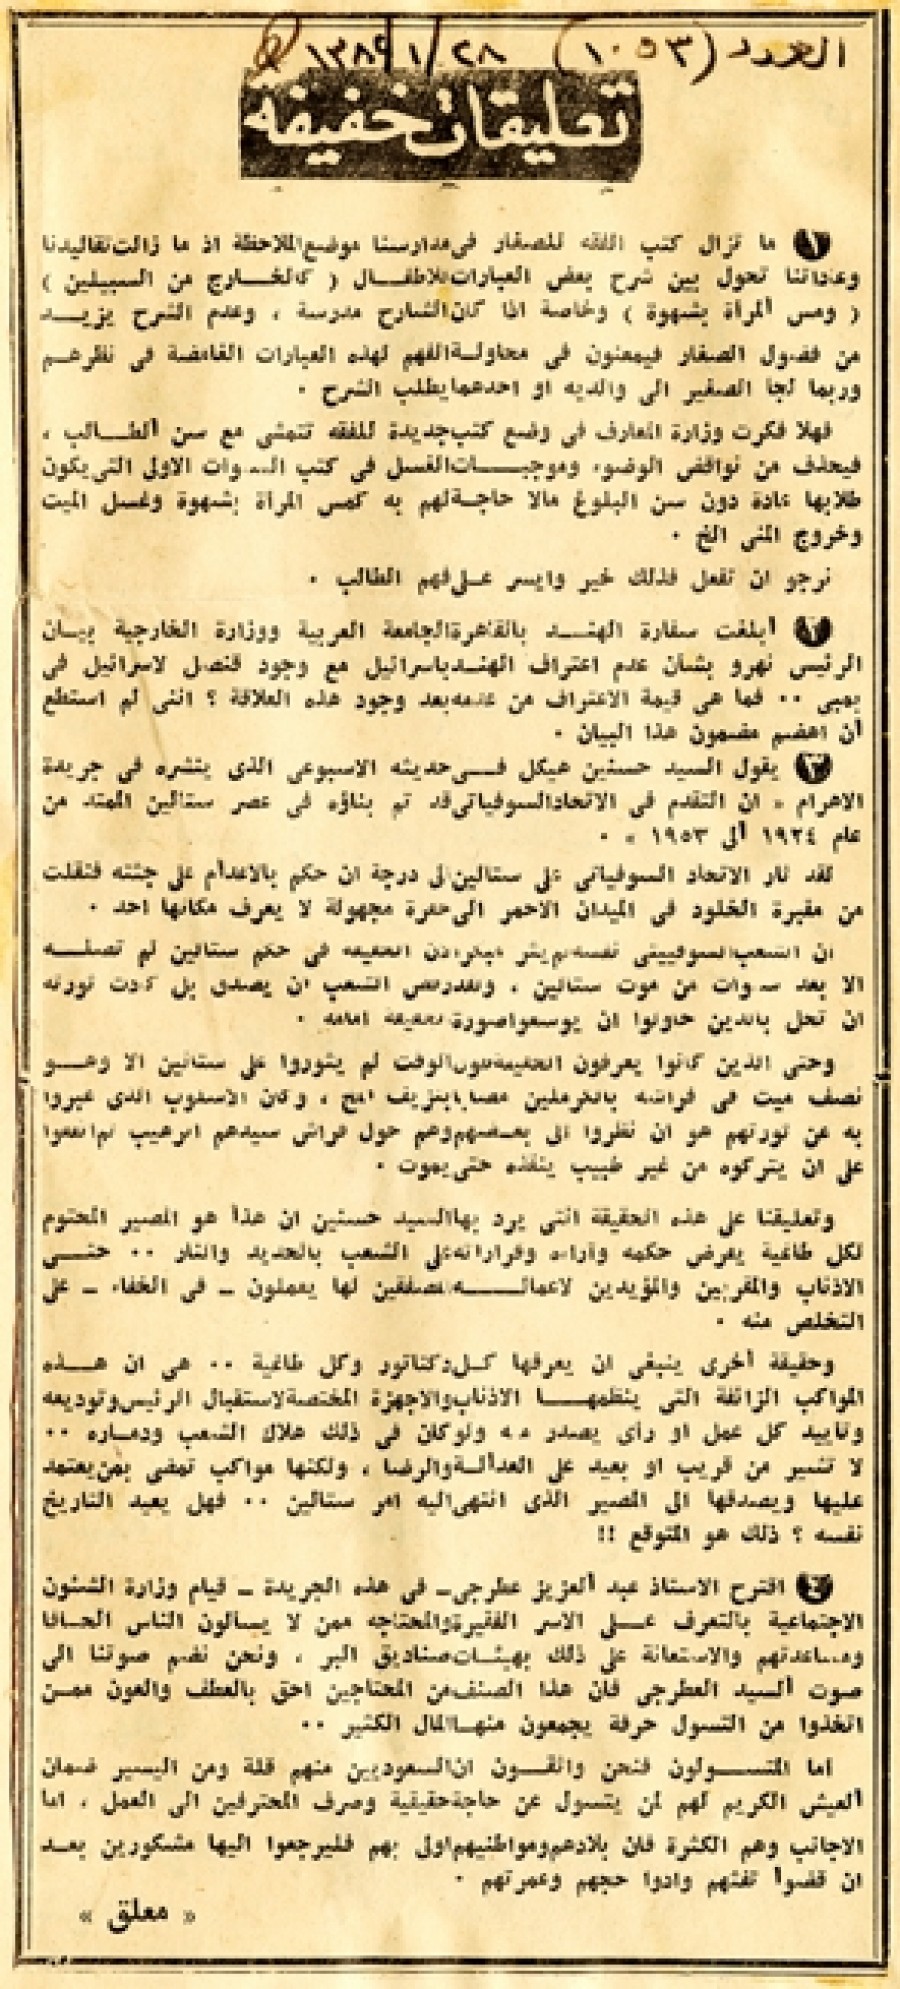 العدد (١٠٥٣) ٢٨/١/١٣٨٩
تعليقات خفيفة
١ ما تزال كتب الفقه للصغار في مدارسنا موضع الملاحظة اذ ما زالت تقاليدنا
وعاداتنا تحول بين شرح بعض العبارات للاطفــال ( كالخارج من السبيلين )
( ومس ألمرأة بشهوة ) وخاصة اذا كان الشارح مدرسة ، وعدم الشرح يزيــد
من فضول الصغار فيمعنون في محاولة الفهم لهذه العبارات الغامضة في نظرهــم
وربما لجا الصغير الى والديه او احدهما يطلب الشرح .
فهلا فكرت وزارة المعارف في وضع كتب جديدة للفقه تتمشى مع سن ألطــالب ،
فيحذف من نواقض الوضوء وموجبــات الغسل في كتب السنوات الاولى التي يكون
طلابها عادة دون سن البلوغ مالا حاجة لهم به كمس المرأة بشهوة وغسل الميت
وخروج المنى الخ .
نرجو ان تفعل فذلك خير وايسر على فهم الطالب .
٢ أبلغت سفارة الهنــد بالقاهرة الجامعة العربية ووزارة الخارجية ببيــان
الرئيس نهرو بشأن عدم اعتراف الهند باسرائيل مع وجود قنصل لاسرائيل في
بمبي .. فما هي قيمة الاعتراف من عدمه بعد وجود هذه العلاقة ؟ انني لم استطع
أن اهضم مضمون هذا البيان .
٣ يقول السيد حسنين هيكل فــي حديثه الاسبوعى الذى ينشره في جريدة
الاهرام « ان التقدم في الاتحاد السوفياتي قد تم بناؤه في عصر ستالين الممتد من
عام ١٩٢٤ ألى ١٩٥٣ » .
لقد ثار الاتحاد السوفياتي على ستالين الى درجة ان حكم بالاعدام على جثته فنقلت
من مقبرة الخلود في الميدان الاحمر الى حفرة مجهولة لا يعرف مكانها احد .
ان الشعب السوفييتي نفسه لم يثر لان الحقيقة في حكم ستالين لم تصلــه
الا بعد سنوات من موت ستالين ، ولقد رفض الشعب ان يصدق بل كادت ثورته
ان تحل بالذين حاولوا ان يوسعوا صورة الحقيقة امامه .
وحتى الذين كانوا يعرفون الحقيقة الوقت لم يثوروا على ستالين الا وهــو
نصف ميت في فراشه بالكرملين مصابا بنزيف المخ ، وكان الاسلوب الذى عبروا
به عن ثورتهم هو ان نظروا الى بعضهم وهم حول فراش سيدهم الرهيب ثم اتفقوا
على ان يتركوه من غير طبيب ينقذه حتى يموت .
وتعليقنا على هذه الحقيقة التى يرد بها السيد حسنين ان هذأ هو المصير المحتوم
لكل طاغية يفرض حكمه وآراءه وقراراته على الشعب بالحديد والنار .. حتــى
الاذناب والمقربين والمؤيدين لاعمالــــه المصفقين لها يعملون ـ في الخفاء ـ على
التخلص منه .
وحقيقة أخرى ينبغي ان يعرفها كــل دكتاتور وكل طاغية .. هي ان هــذه
المواكب الزائفة التى ينظمهــا الاذناب والاجهزة المختصة لاستقبال الرئيس وتوديعه
وتأييد كل عمل او رأى يصدر منه ولو كان في ذلك هلاك الشعب ودمــاره ..
لا تشير من قريب او بعيد على العدألــة والرضا ، ولكنها مواكب تمضى بمن يعتمد
عليها ويصدقها الى المصير الذى انتهى اليه امر ستالين .. فهل يعيد التاريخ
نفسه ؟ ذلك هو المتوقع !!
٤ اقترح الاستاذ عبد ألعزيز عطرجى ـ في هذه الجريدة ـ قيام وزارة الشئون
الاجتماعية بالتعرف علــى الاسر الفقيرة والمحتاجه ممن لا يسألون الناس الحــافا
ومساعدتهم والاستعانة على ذلك بهيئــات صناديق البر ، ونحن نضم صوتنا الى
صوت ألسيد العطرجى فان هذا الصنف من المحتاجين احق بالعطف والعون ممــن
اتخذوا من التسول حرفة يجمعون منهــا المال الكثير ..
اما المتســـولون فنحن واثقــون ان السعوديين منهم قلة ومن اليسير ضمان
ألعيش الكريم لهم لمن يتسول عن حاجة حقيقية وصرف المحترفين الى العمل ، اما
الاجانب وهم الكثرة فان بلادهم ومواطنيهم اولى بهم فليرجعوا اليها مشكورين بعــد
ان قضوأ تفثهم وادوا حجهم وعمرتهم .
« معلق »